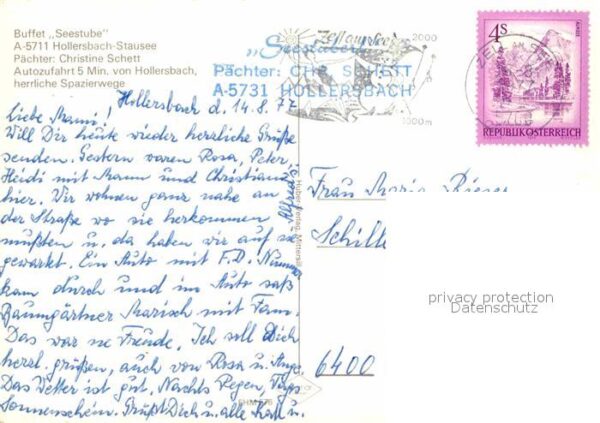 Buffet „Seestube"
A-5711 Hollersbach-Stausee
Pächter: Christine Schett
Autozufahrt 5 Min. von Hollersbach,
herrliche Spazierwege
Zell am See
2000
1000m
„Seestüberl"
Pächter: CHR. SCHETT
A-5731 HOLLERSBACH
4s
REPUBLIK ÖSTERREICH
ZELL AM SEE
Hollersbach d. 14.8.77
Liebe Mami!
Will Dir heute wieder herzliche Grüße
senden. Gestern waren Rosa, Peter,
Heidi mit Mann und Christian
hier. Wir wohnen ganz nahe an
der Straße wo sie herkommen
mußten u. da haben wir auf sie
gewartet. Ein Auto mit F.D. Nummer
kam durch und im Auto saß
Baumgärtner Marisch mit Fam.
Das war ne Freude. Ich soll Dich
herzl. grüßen, auch von Rosa u. Angs.
Das Wetter ist gut, Nachts Regen, Tags
Sonnenschein. Grüßt Dich u. alle
Alfred's
Huber-Verlag, Mittersill
Frau Maria
Schill
6400
privacy protection
Datenschutz